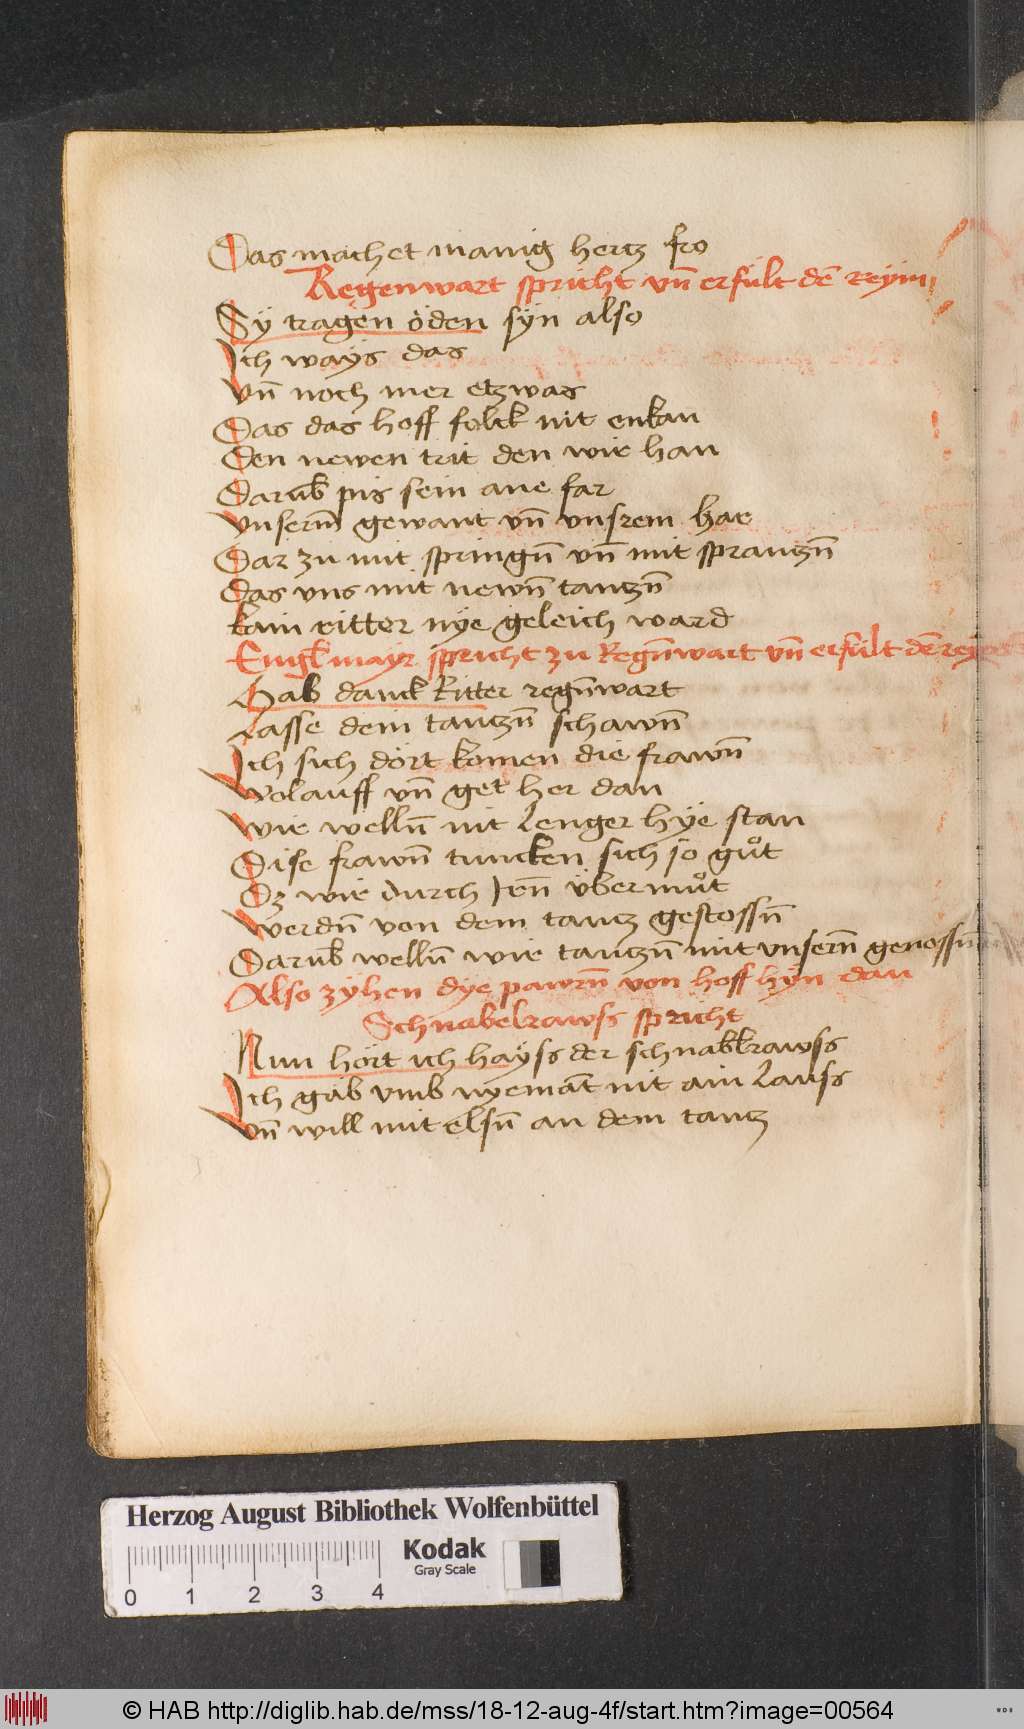 Das machet manig hertz fro
Regenwart spricht vn̄ erfült dē reym
Sÿ tragen öden sÿn also
Ich waÿs das
vn̄ noch mer etzwas
Das das hoff folck nit enkan
Den newen trit den wir han
Darub̄ pis sein ane far
vnserm̄ gewant vn̄ vnsrem har
Dar zu mit springn̄ vn̄ mit sprantzn̄
Das vns mit newn̄ tantzn̄
kain ritter nÿe geleich ward
Englmayr spricht zu Regn̄wart vn̄ erfült dē
Hab danck Ritter regn̄wart
Lasse dein tantzn̄ schawn̄
Ich sich dört komen die frawn̄
wolauff vn̄ get her dan
wir welln̄ nit lenger hÿe stan
Dise frawn̄ tuncken sich so gůt
Dz wir durch Jen̄ übermůt
werdn̄ von dem tantz gestossn̄
Darub̄ welln̄ wir tantzn̄ mit vnsern̄ genossn̄
Also zÿhen dÿe pawrn̄ von hoff hÿn dan
Schnabelrawss spricht
Nun hört ich haÿss der schnablrawss
Ich gäb vmb nÿemāt nit ain Lauss
vn̄ will mit elsn̄ an dem tantz
Herzog August Bibliothek Wolfenbüttel
Kodak
Gray Scale
0 1 2 3 4
© HAB http://diglib.hab.de/mss/18-12-aug-4f/start.htm?image=00564